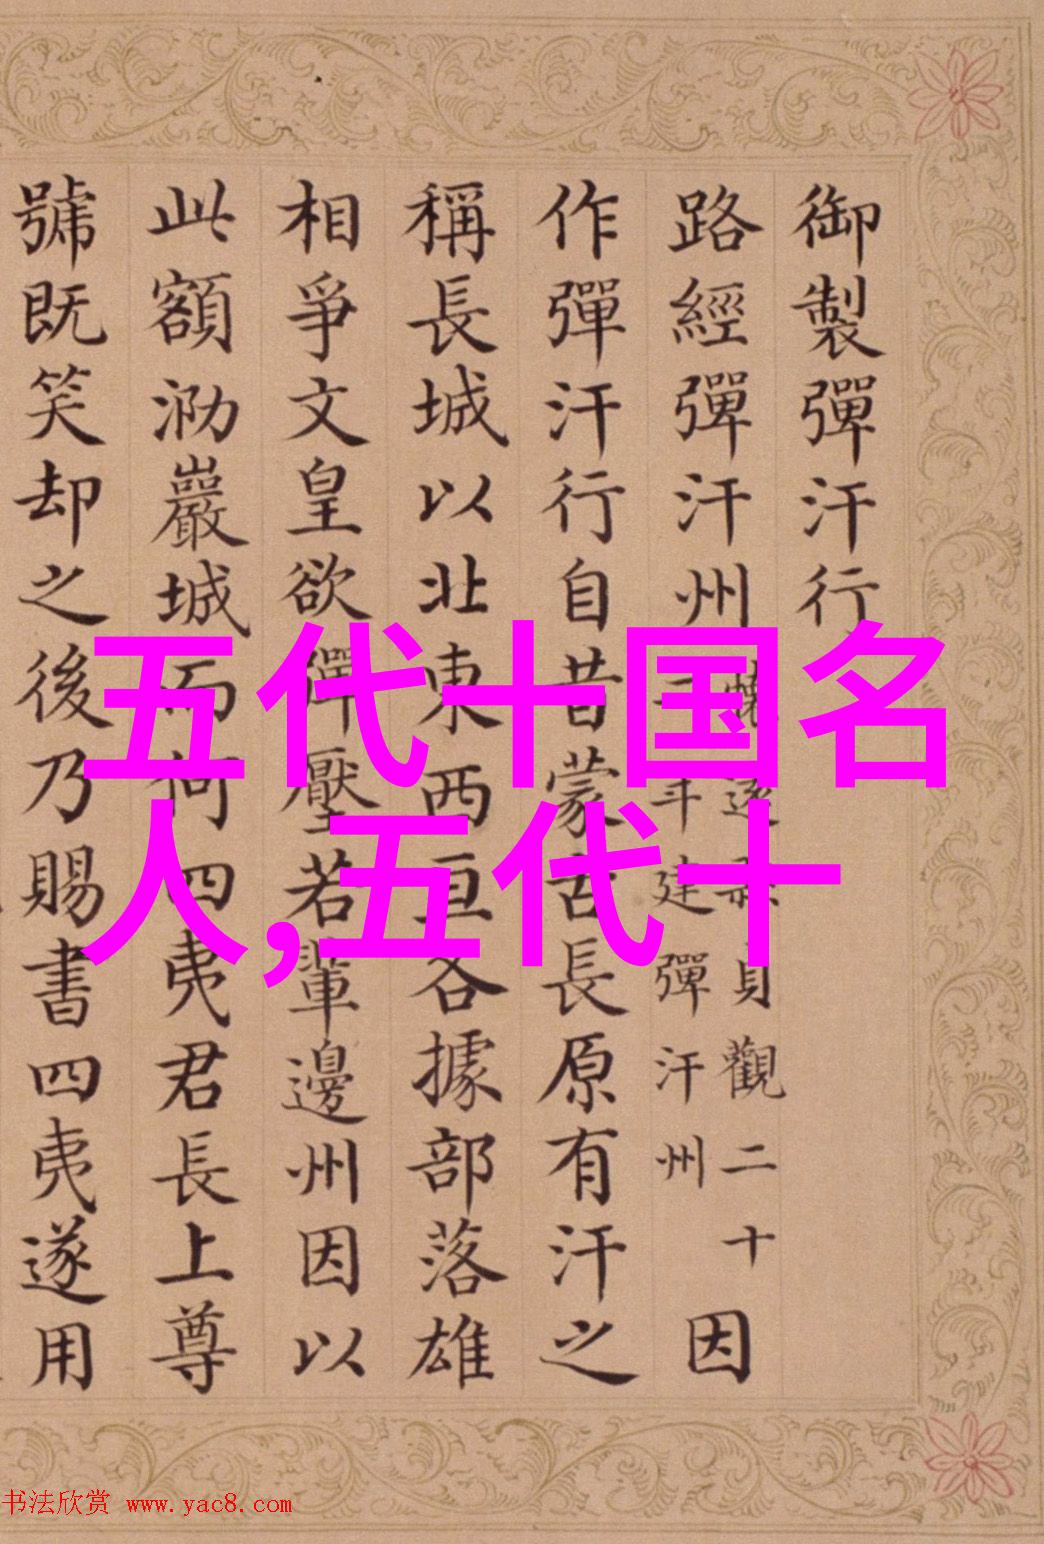 御製彈汗行
路經彈汗州
貞觀二十
年建彈汗州
因
作彈汗行自昔蒙古長原有汗之
稱長城以北東西亘各據部落雄
相爭文皇欲彈壓若輩邊州因以
此額泐巖城而何四夷君長上尊
號既笑却之後乃賜書四夷遂用
五代十国名
人,五代十
书法欣赏 www.yac8.com